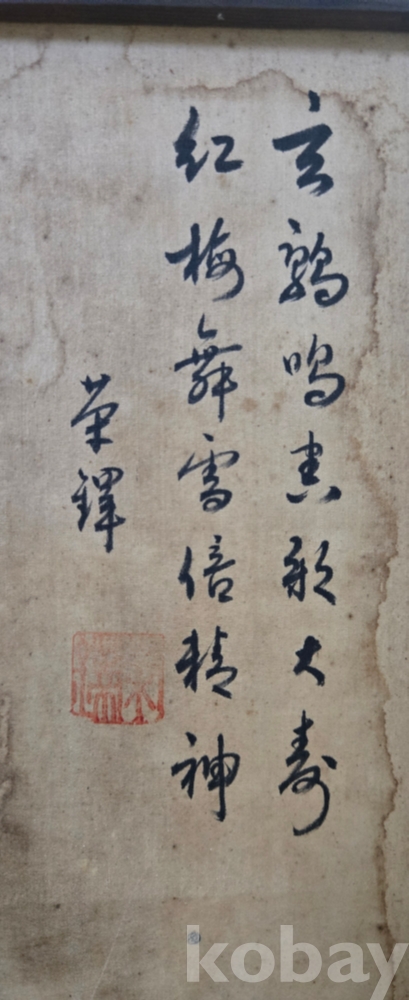 玄鶴鳴大壽
紅梅舞雪倍精神
榮鐸
kobay